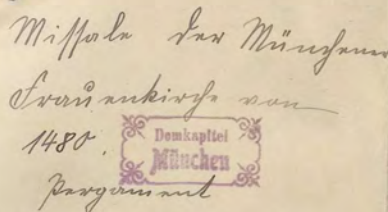 Missale der Münchener
Frauenkirche von
1480.
Domkapitel
München
Pergament